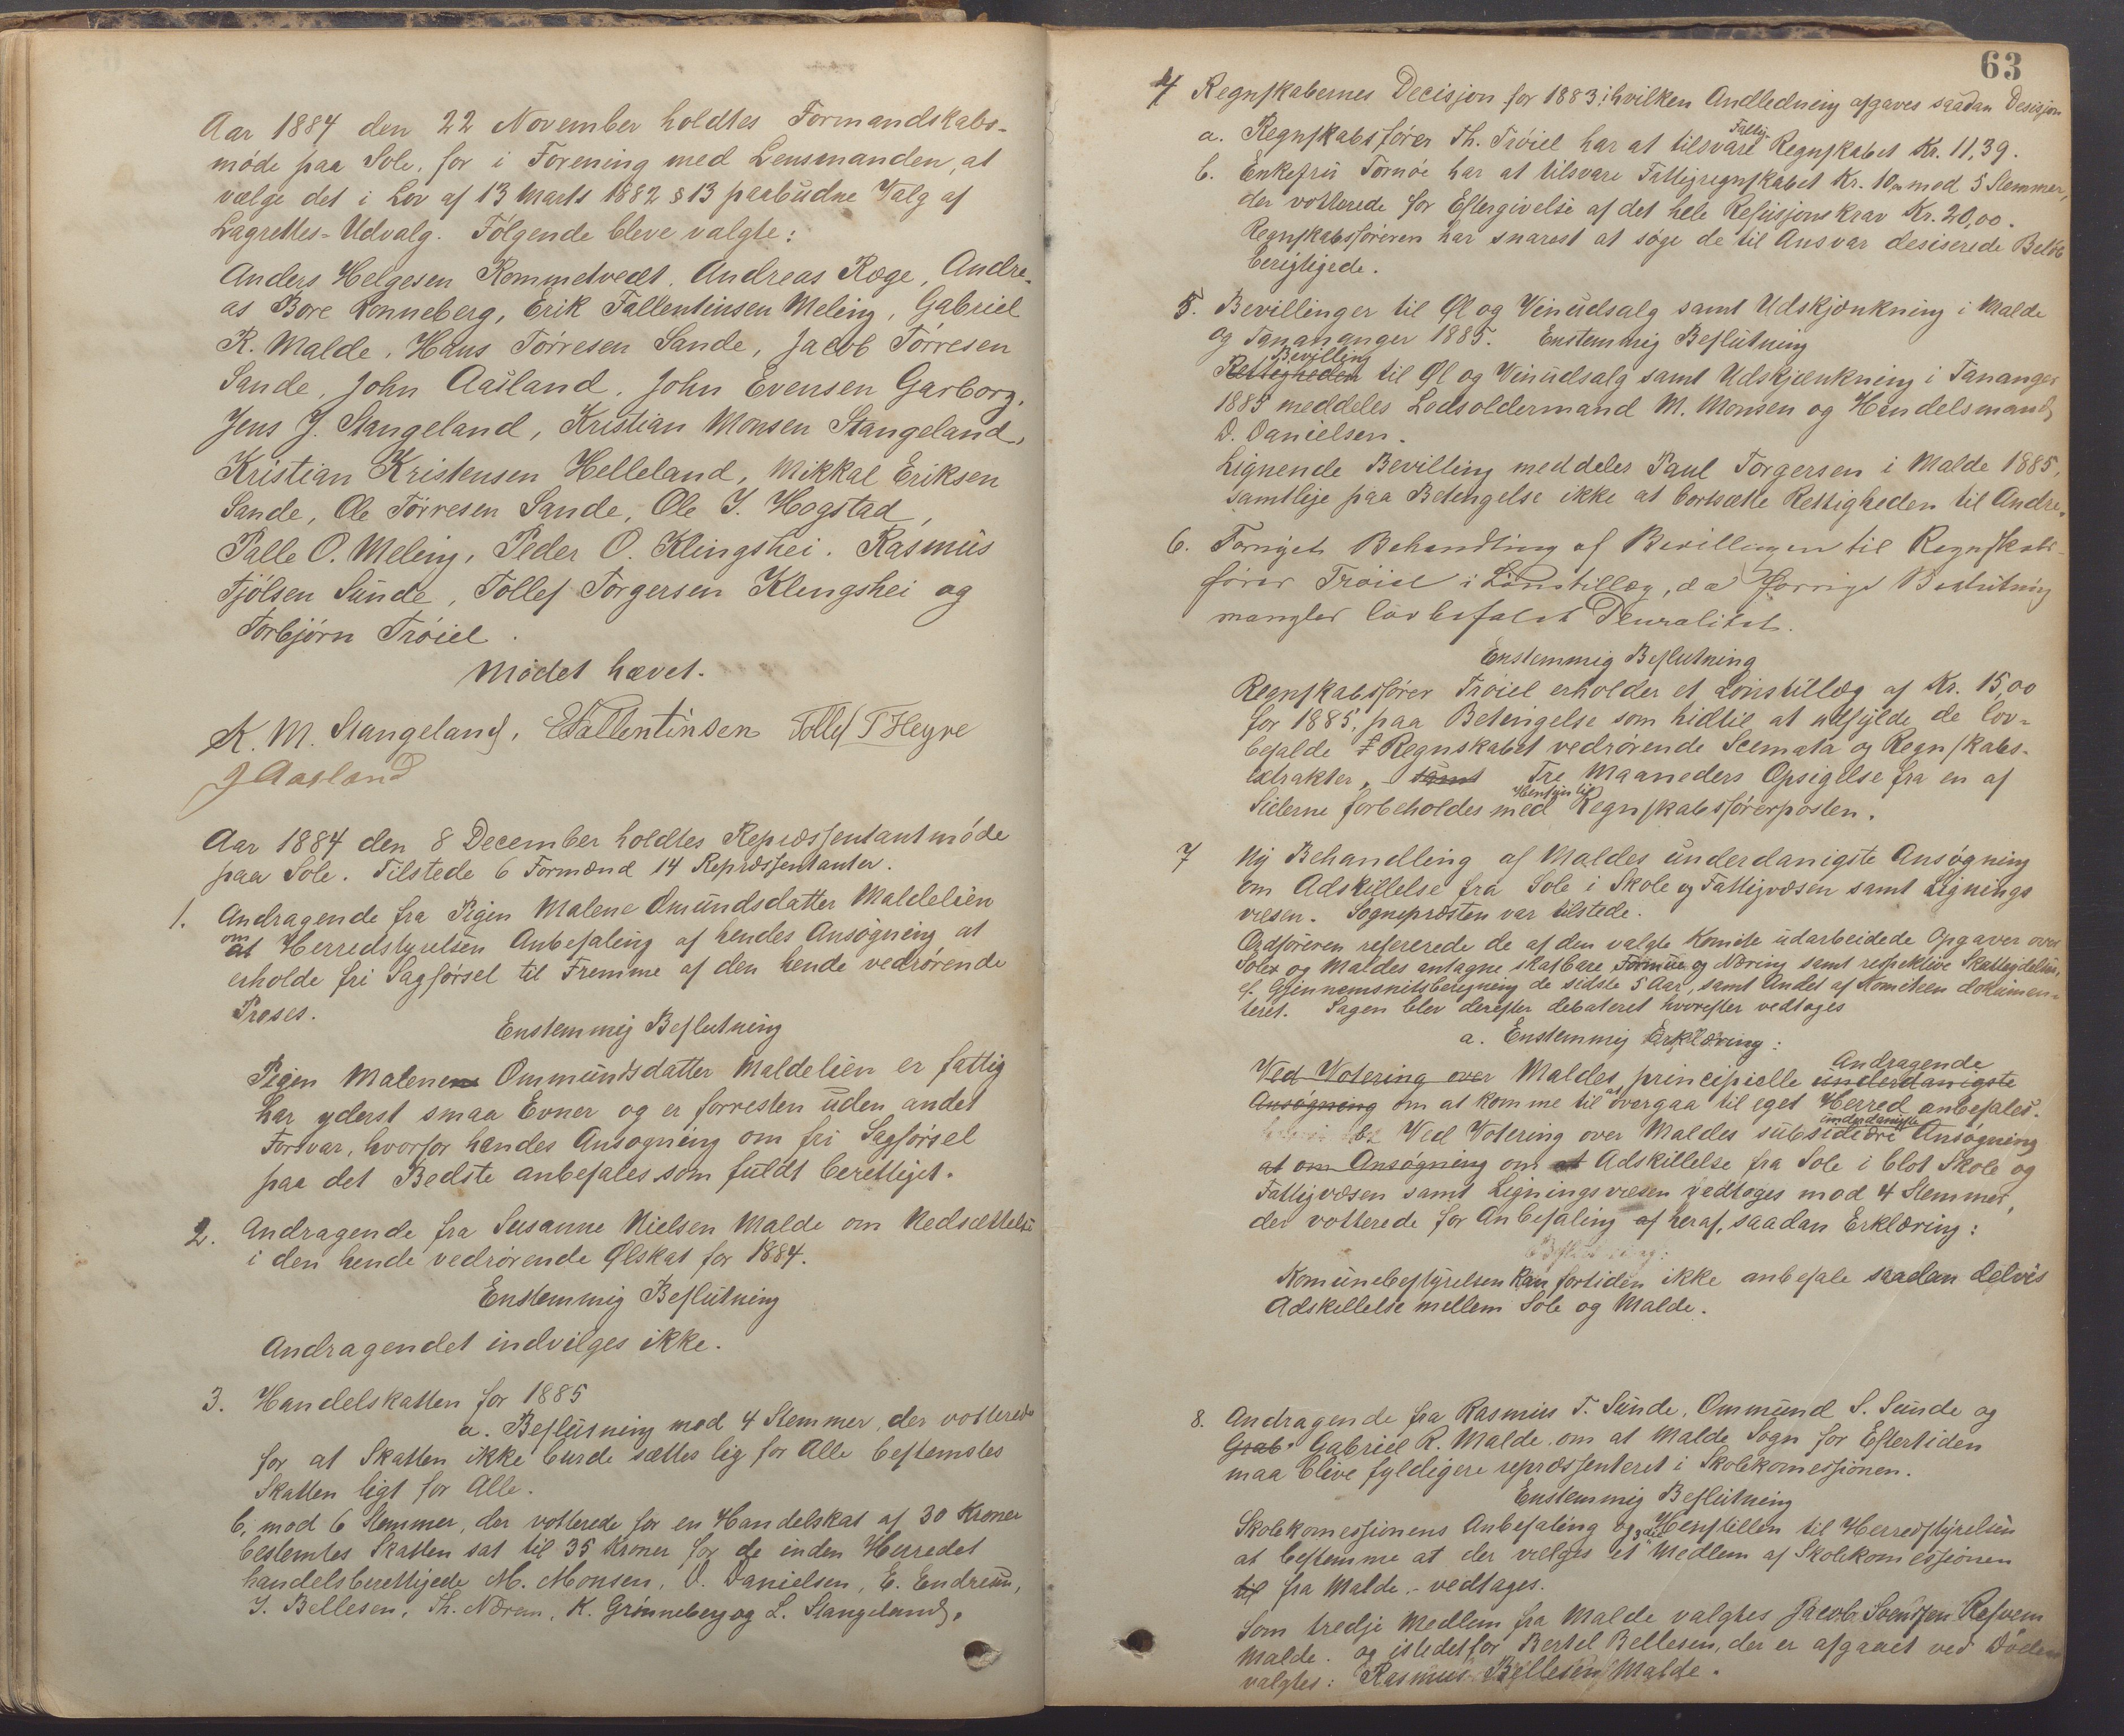 Aar 1884 den 22 November holdtes Formandskabs-
møde paa Sole, for i Forening med Lensmanden, at
vælge det i Lov af 13 Marts 1882 § 13 paabudne Valg af
Lagrettes-Udvalg. Følgende bleve valgte:
Anders Helgesen Rommetvedt, Andreas Roge, Andre-
as Bore Ronneberg, Erik Fallentinsen Meling, Gabriel
R. Malde, Hans Tørresen Sande, Jacob Tørresen
Sande, John Aasland, John Evensen Garborg,
Jens J. Stangeland, Kristian Monsen Stangeland,
Kristian Kristensen Helleland, Mikkal Eriksen
Sande, Ole Tørresen Sande, Ole I. Hogstad,
Palle O. Meling, Peder O. Klingshei, Rasmus
Tjølsen Sunde, Tollef Torgersen Klingshei og
Torbjørn Trøiel.
Mødet hævet.
K. M. Stangeland, E Fallentinsen Tollef T Heyre
J Aasland
Aar 1884 den 8 December holdtes Repræssentantmøde
paa Sole. Tilstede 6 Formænd 14 Repræssentanter.
1. Andragende fra Pigen Malene Omundsdatter Maldelien
om
at Herredstyrelsen Anbefaling af hendes Ansøgning at
erholde fri Sagførsel til Fremme af den hende vedrørende
Proses.
Enstemmig Beslutning
Pigen Malene Ommundsdatter Maldelien er fattig
har yderst smaa Evner og er forresten uden andet
Forsvar, hvorfor hendes Ansøgning om fri Sagførsel
paa det Bedste anbefales som fuldt berettiget.
2. Andragende fra Susanne Nielsen Malde om Nedsættelse
i den hende vedrørende Ølskat for 1884.
Enstemmig Beslutning
Andragendet indvilges ikke.
3. Handelskatten for 1885
a. Beslutning mod 4 Stemmer, der votterede
for at Skatten ikke burde sættes lig for Alle bestemtes
Skatten ligt for Alle.
b, mod 6 Stemmer, der votterede for en Handelskat af 30 Kroner
bestemtes Skatten sat til 35 Kroner for de inden Herredet
handelsberettigede M. Monsen, D. Danielsen, E. Endresen,
I. Bellesen, Th. Næren, K. Grønneberg og L. Stangeland.
63
4 Regnskabernes Decisjon for 1883 i hvilken Andledning afgaves saadan Desisjon
a. Regnskabsfører Th. Trøiel har at tilsvare Fattig Regnskabet Kr. 11,39.
b. Enkefru Tornøe har at tilsvare Fattigregnskabet Kr. 10,00 mod 5 Stemmer,
der votterede for Eftergivelse af det hele Refusjonskrav Kr. 20,00.
Regnskabsføreren har snarest at søge de til Ansvar desiserede Beløb
berigtigede.
5. Bevillinger til Øl og Vinudsalg samt Udskjænkning i Malde
og Tanananger 1885. Enstemmig Beslutning
Bevilling
Rettigheden til Øl og Vinudsalg samt Udskjænkning i Tananger
1885 meddeles Lodsoldermand M. Monsen og Handelsmand
D. Danielsen.
Lignende Bevilling meddeles Paul Torgersen i Malde 1885,
samtlige paa Betingelse ikke at bortsætte Rettigheden til Andre.
6. Fornyet Behandling af Bevillingen til Regnskabs-
fører Trøiel i Lønstillæg, da forrige Beslutning
mangler lovbefalet Pluralitet.
Enstemmig Beslutning
Regnskabsfører Trøiel erholder et Lønstillæg af Kr. 15,00
for 1885, paa Betingelse som hidtil at udfylde de lov-
befalde Regnskabet vedrørende Scemata og Regnskabs-
extrakter, samt Tre Maaneders Opsigelse fra en af
Siderne forbeholdes med Hensyn til Regnskabsførerposten.
7 Ny Behandling af Maldes underdanigste Ansøgning
om Adskillelse fra Sole i Skole og Fattigvæsen samt Lignings
væsen. Sognepræsten var tilstede.
Ordføreren refererede de af den valgte Komite udarbeidede Opgaver over
Soles og Maldes antagne skatbare Formue og Næring samt respektive Skatteydelser,
ef. Gjennemsnitsberegning de sidste 5 Aar, samt Andet af Komiteen dokumen-
teret. Sagen blev derefter debateret hvorefter vedtoges
a. Enstemmig Erklæring:
Andragende
Ved Votering over Maldes principielle underdanigste
Ansøgning om at komme til at overgaa til eget Herred anbefales.
underdanigste
b. Ved Votering over Maldes subsidiære Ansøgning
at om Ansøgning om at Adskillelse fra Sole i blot Skole og
Fattigvæsen samt Ligningsvæsen vedtoges mod 4 Stemmer,
der votterede for Anbefaling af heraf, saadan Erklæring:
Komunebestyrelsen kan fortiden ikke anbefale saadan delvis
Adskillelse mellem Sole og Malde.
8. Andragende fra Rasmus T. Sunde, Ommund S. Sunde og
Gsab. Gabriel R. Malde om at Malde Sogn for Eftertiden
maa blive fyldigere repræssenteret i Skolekomessionen.
Enstemmig Beslutning
Skolekomessionens Anbefaling og Henstillen til Herredstyrelsen
at bestemme at der vælges et Medlem af Skolekomessionen
til fra Malde - vedtages.
Som tredje Medlem fra Malde valgtes Jacob Svendsen Refvem
Malde. og istedetfor Bertel Bellesen, der er afgaaet ved Døden
valgtes: Rasmus Bellesen Malde.